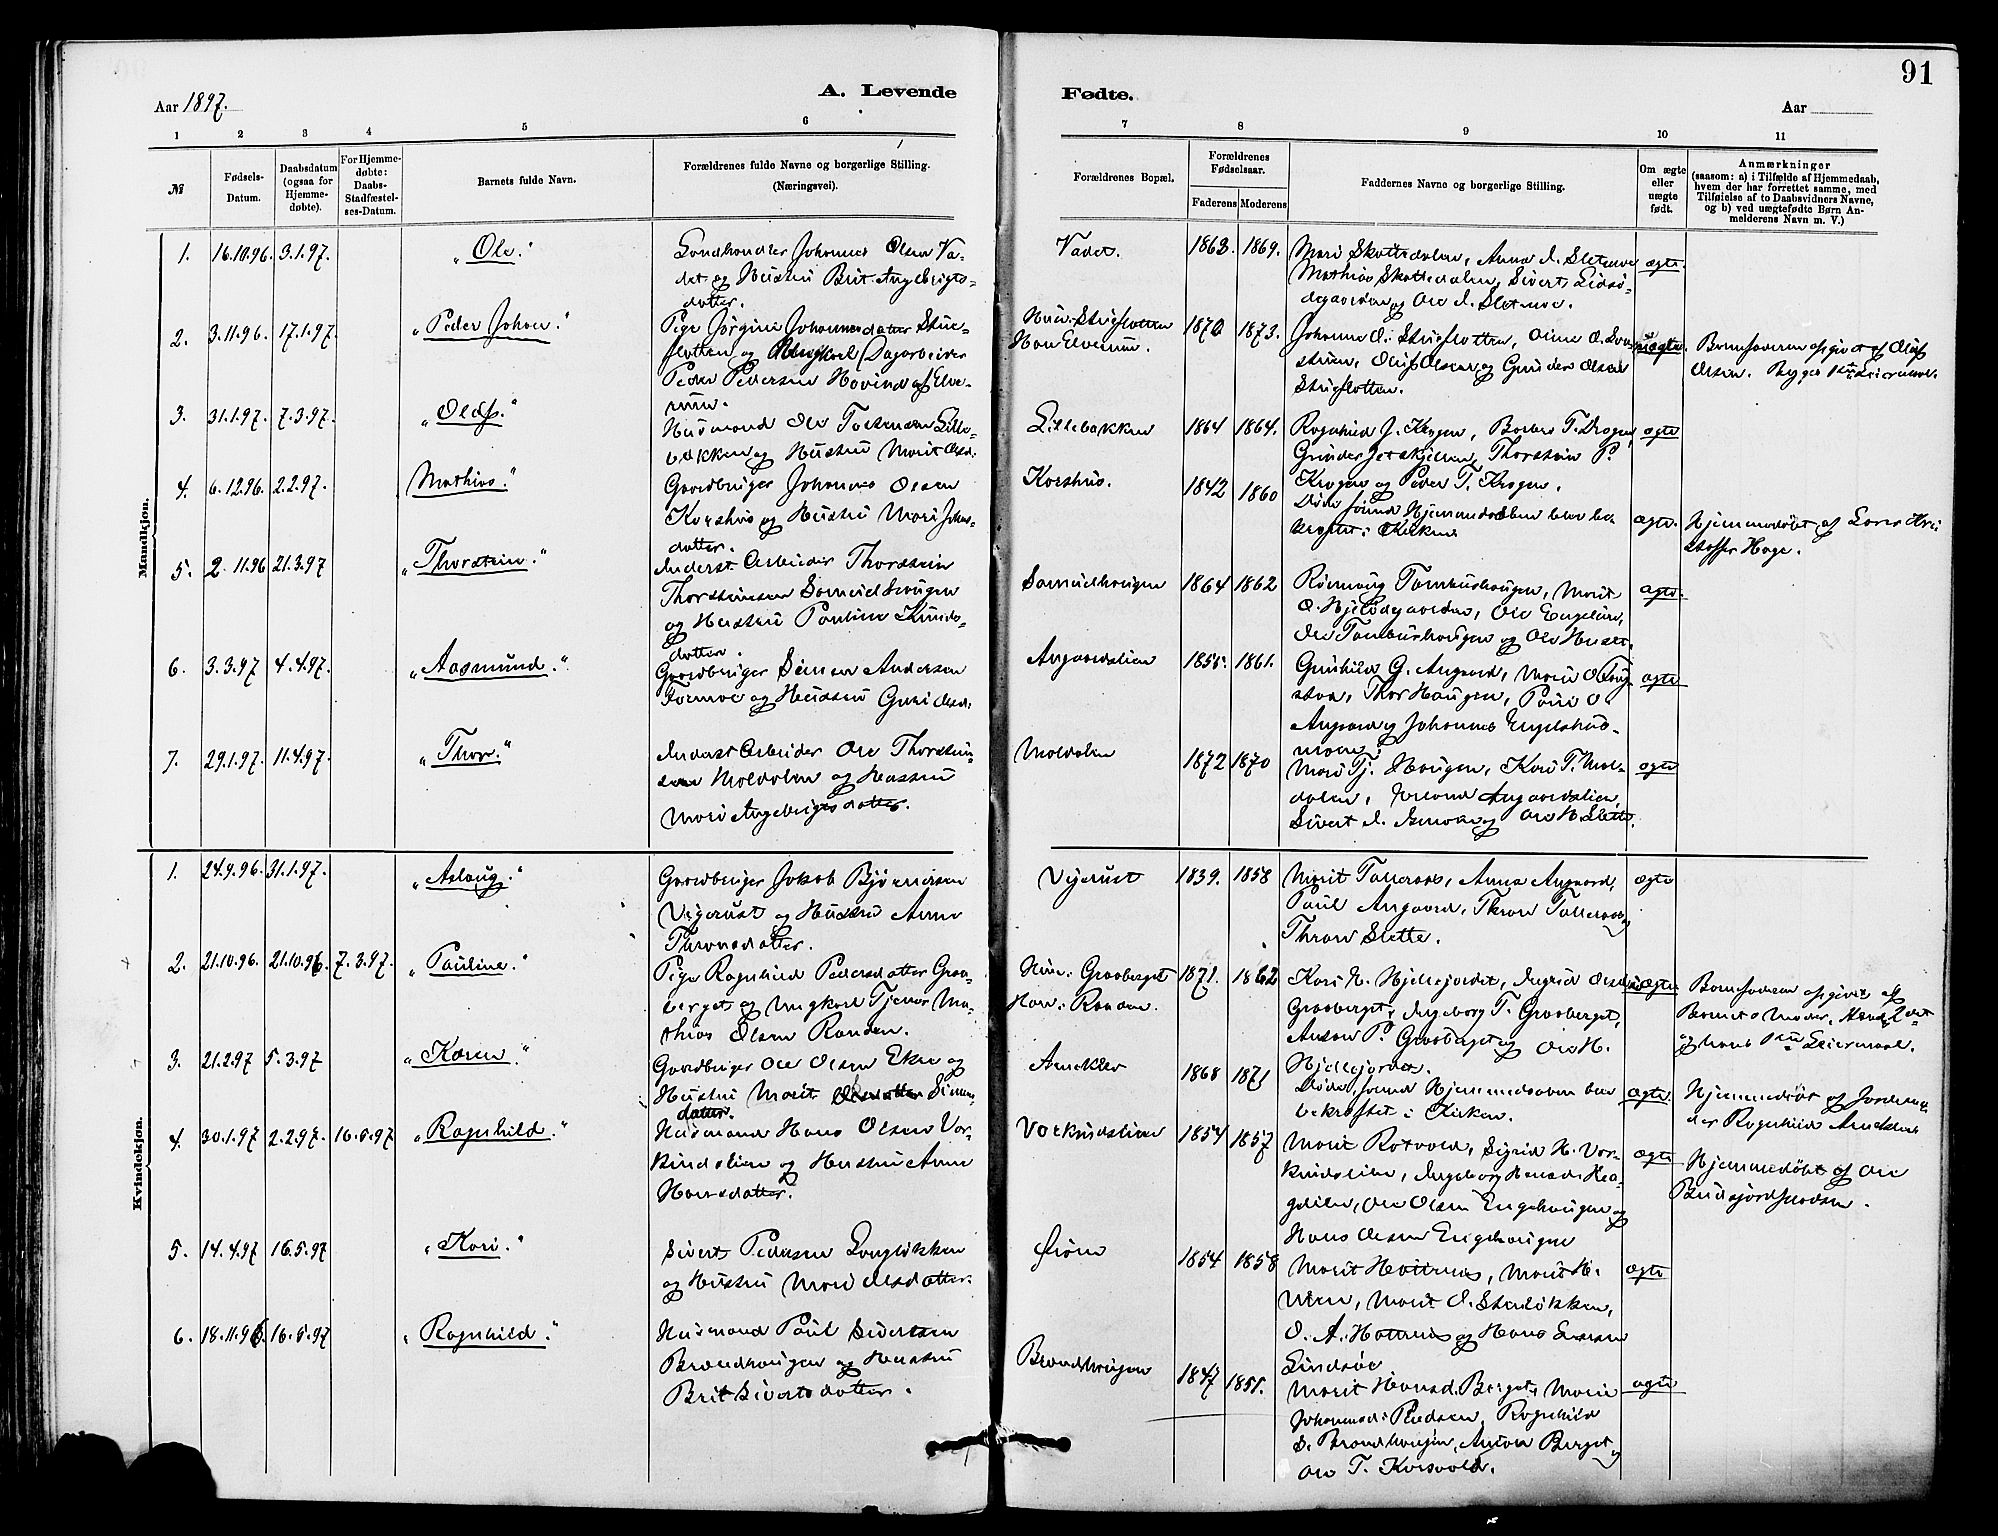 91
Aar 1897.
A. Levende
Fødte.
Aar
1 2 3 4 5 6
7 8 9 10 11
№
Fødsels-
Datum.
Daabsdatum
(ogsaa for
Hjemme-
døbte).
For Hjemme-
døbte:
Daabs-
Stadfæstel-
ses-Datum.
Barnets fulde Navn.
Forældrenes fulde Navne og borgerlige Stilling.
(Næringsvei).
Forældrenes Bopæl.
Forældrenes
Fødselsaar.
Faderens Moderens
Faddernes Navne og borgerlige Stilling.
Om ægte
eller
uægte
født.
Anmærkninger
(saasom: a) i Tilfælde af Hjemmedaab,
hvem der har forrettet samme, med
Tilføielse af to Daabsvidners Navne,
og b) ved uægtefødte Børn An-
melderens Navn m. V.)
Mandkjøn.
1. 16.10.96. 3.1.97. "Ole."
Landhandler Johannes Olsen Va-
det og Hustru Brit Angebrigts-
datter.
Vadet. 1863. 1869.
Mari Skottedalen, Anna I. Sletmoe
Mathias Skottedalen, Sivert
og Ole I. Sletmoe.
ægte.
2. 3.11.96. 17.1.97. "Peder Johan."
Pige Jørgine Johannesdatter Stue-
flotten og Ungkarl Dagarbeider
Peder Pedersen Hovind af Elve-
rum.
Hun: Stueflotten
Han Elverum.
1870 1873.
Johanna O. Stueflotten,
Oluf Olsen og Gunder Olsen
Stueflotten.
uægte.
Barnefaderen opgivet af Oluf
Olsen. Begges 1ste Leiermaal.
3. 31.1.97. 7.3.97. "Oluf."
Husmand Ole Tostensen Lille-
bakken og Hustru Marit Olsd.
Lillebakken 1864 1864.
Ragnhild J. Krogen, Barbro T. Krogen,
Gunder Jetskjellen, Thorstein P.
Krogen og Peder T. Krogen.
ægte
4. 6.12.96. 2.2.97. Mathias."
Gaardbruger Johannes Olsen
Korshus og Hustru Mari Johns-
datter.
Korshus. 1842 1860
Døde førend Hjemmedaaben blev be-
kræftet i Kirken
ægte.
Hjemmedøbt af Lars Kri-
stoffer Hage.
5. 2.11.96 21.3.97 "Thorstein."
Inderst Arbeider Thorstein
Thorsteinsen Samuelshaugen
og Hustru Pauline Knuds-
datter.
Samuelhaugen 1864 1862
Rønnaug Tamburhaugen, Marit
O. Hjelsdgaarden, Ole Engelien,
Ole Tamburhaugen og Ole
ægte.
6. 3.3.97 4.4.97. "Aasmund."
Gaardbruger Simen Andersen
Formoe og Hustru Guri Olsd.
Angaardslien 1855. 1861.
Gunhild G. Angaard, Mari O.
Thor Haugen, Paul O.
Angaard og Johannes Engelshus-
moen.
ægte
7. 29.1.97. 11.4.97. "Thor."
Inderst Arbeider Ole Thorstein-
sen Moldalen og Hustru
Mari Angebrigtsdatter.
Moldalen 1872 1870
Mari Tj. Haugen, Kari T. Mol-
dalen, Erland Angaardslien,
Sivert I. og Ole H. Slette.
ægte
Kvindekjøn.
1. 24.9.96. 31.1.97. "Aslaug."
Gaardbruger Jakob Bjørnersen
Vigerust og Hustru Anne
Thronsdatter.
Vigerust 1839. 1858
Marit Talleraas, Anna Angaard,
Paul Angaard, Thron Talleraas og
Thron Slette.
ægte
2. 21.10.96. 21.10.96. 7.3.97. "Pauline."
Pige Ragnhild Pedersdatter Graa-
berget og Ungkarl Tjener Ma-
thias Olsen Randen.
Hun: Graaberget
Han: Randen
1871. 1862
Kari H. Hjellejordet, Ingrid
Graaberget, Ingeborg T. Graaberget,
Anton P. Graaberget og Ole H.
Hjellejordet.
uægte
Barnefaderen opgivet af
Barnets Moder, Hendes 2det
og hans 1ste Leiermaal.
3. 21.2.97 5.3.97 "Karen."
Gaardbruger Ole Olsen Ekre og
Hustru Marit Simens-
datter.
Arneklev 1868 1871
Døde, førend Hjemmedaaben blev
bekræftet i Kirken.
ægte.
Hjemmedøbt af Jordemo-
der Ragnhild Arnekleiv
4. 30.1.97 2.2.97. 16.5.97 "Ragnhild."
Husmand Hans Olsen Vor-
kindslien og Hustru Anne
Hansdatter.
Vorkindslien 1854 1857
Marit Rotvold, Sigrid H. Vor-
kindslien, Ingeborg Hansd.
Ole Olsen Engehaugen og
Hans Olsen Engehaugen
ægte
Hjemmedøbt af Ole
5. 14.4.97 16.5.97 "Kari."
Sivert Pedersen Longløkken
og Hustru Mari Olsdatter.
1854 1858
Marit Hattrus, Marit H.
Marit O. Stenløkken,
O. A. Hattrus og Hans Larsen
ægte
6. 18.11.96 16.5.97 "Ragnhild."
Husmand Paul Sivertsen
Brændhaugen og Hustru
Brit Sivertsdatter.
Brændhaugen 1847 1851.
Marit Hansd. Berget, Mari
Ragnhild
S. Brændhaugen, Anton Berget og
Ole T. Korsvold.
ægte